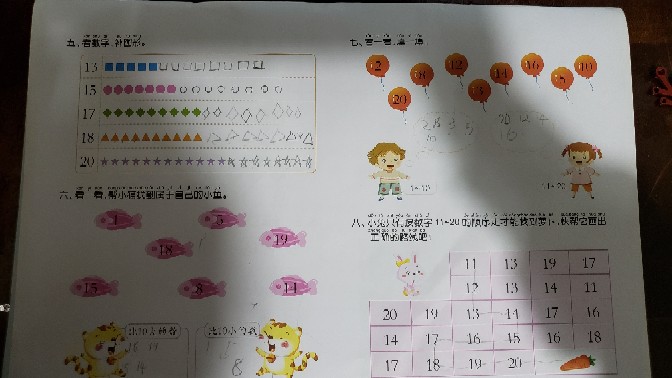 五、看数字,补图形。
13
15
17
18
20
六、看一看,帮小猫找到属于自己的小鱼。
1
5
18
19
15
8
14
比10大的数
比10小的数
8
七、看一看,填一填。
2
18
12
14
16
10
20
13
8
1~10
11~20
八、小兔只有按数字11~20的顺序走才能找到萝卜,快帮它画出
正确的路线吧!
11 13 19 17
12 13 14 11
20 19 13 14 17 16
14 17 16 15 16 18
17 18 19 20